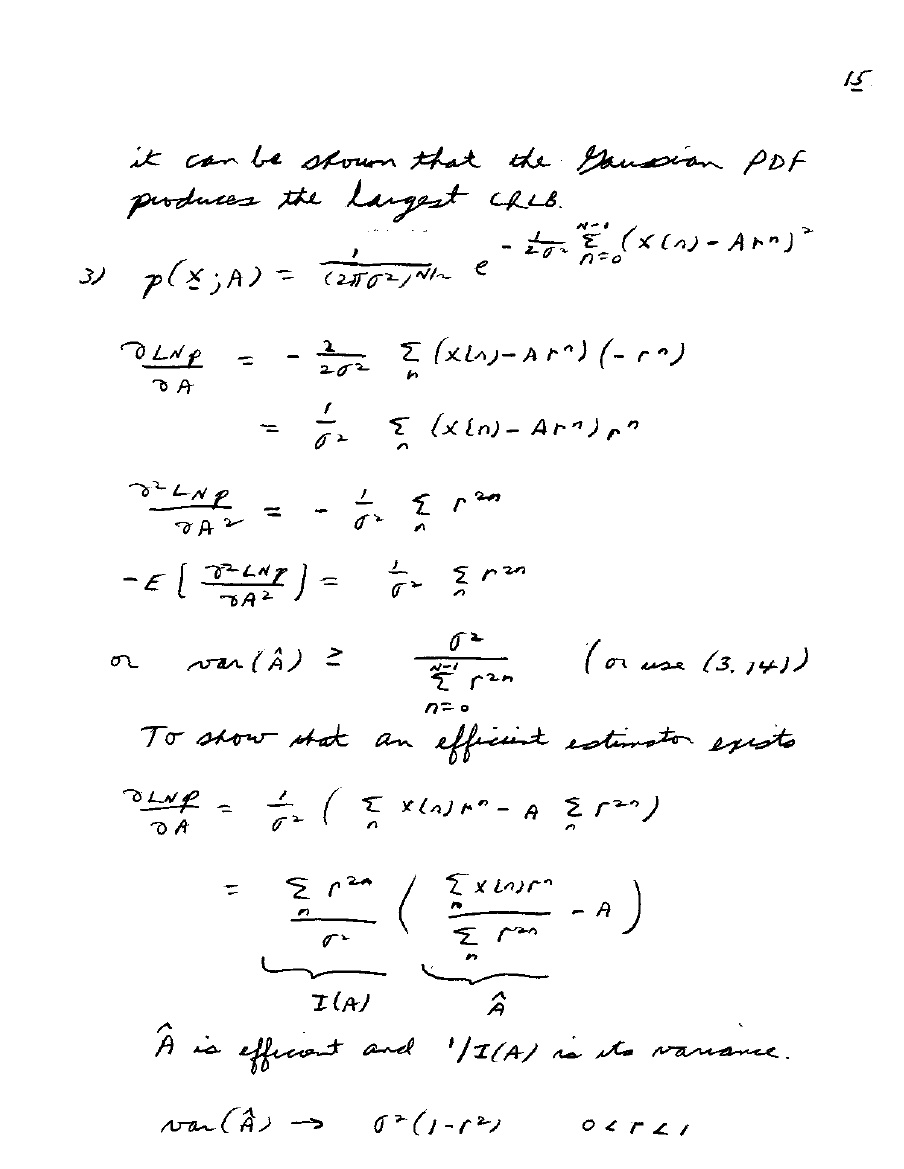 15
it can be shown that the Gaussian PDF
produces the largest CRLB.
3) p(x; A) = 1/(2πσ²)^{N/2} e^{-1/(2σ²) Σ_{n=0}^{N-1} (x[n] - A rⁿ)²}
∂LNp/∂A = - 2/(2σ²) Σ_n (x[n] - A rⁿ)(-rⁿ)
= 1/σ² Σ_n (x[n] - A rⁿ) rⁿ
∂²LNp/∂A² = - 1/σ² Σ_n r^{2n}
-E[∂²LNp/∂A²] = 1/σ² Σ_n r^{2n}
or var(Â) ≥ σ² / Σ_{n=0}^{N-1} r^{2n} (or use (3.14))
To show that an efficient estimator exists
∂LNp/∂A = 1/σ² ( Σ_n x[n] rⁿ - A Σ_n r^{2n} )
= Σ_n r^{2n} / σ² ( Σ_n x[n] rⁿ / Σ_n r^{2n} - A )
I(A) Â
Â is efficient and 1/I(A) is its variance.
var(Â) → σ²(1-r²) 0 < r < 1